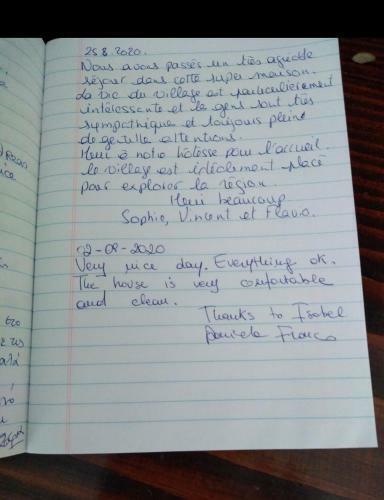 25.8.2020.
Nous avons passés un très agreable
séjour dans cette super maison.
La vie du village est particulièrement
intéressante et le gens sont très
sympathique et toujours plein
de gentille attentions.
Merci à notre hôtesse pour l'accueil.
Le village est idéalement placé
pour explorer la région.
Merci beaucoup
Sophie, Vincent et Flavio.
02-09-2020
Very nice day. Everything ok.
The house is very comfortable
and clean.
Thanks to Isabel
Daniela Franco